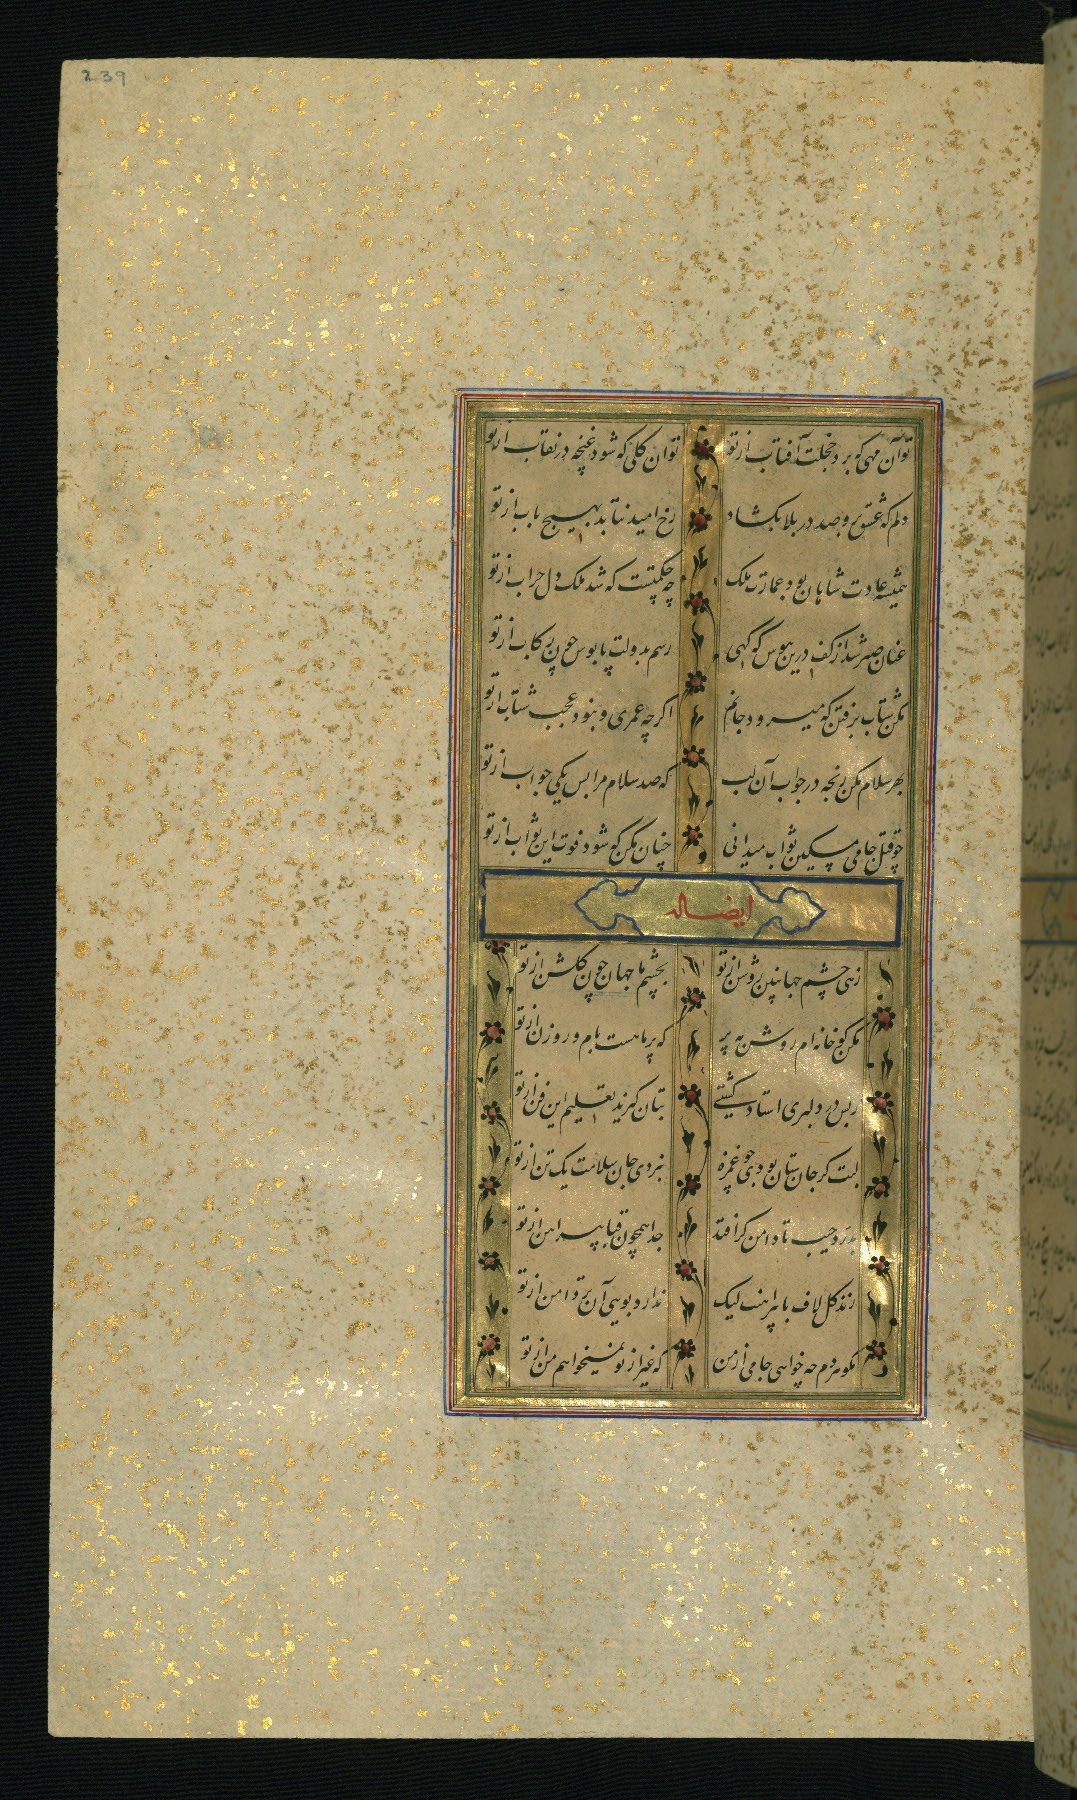 239
تو آن مهی که برد خجلت آفتاب از تو تو آن گلی که شود غنچه در نقاب از تو
دلم که عشق بروصد در بلا بکشاد رخ امید نتابد بهیچ باب از تو
همیشه عادت شاهان بود عمارت ملک چه حکمتست که شد ملک دل خراب از تو
عنان صبر شد از کف درین هوس که گهی رسم بدولت پابوس چون رکاب از تو
مکن شتاب برفتن که میرود جانم اگرچه عمری و نبود عجب شتاب از تو
بهر سلام مکن رنجه در جواب آن لب که صد سلام مرا بس یکی جواب از تو
چو قتل جامی مسکین ثواب میدانی چنان مکن که شود فوت این ثواب از تو
ایضاله
زهی چشم جهانبین روشن از تو بچشم ما جهان چون گلشن از تو
مکن گو خانه ام روشن مه که پر ماهست بام و روزن از تو
زبس در دلبری استاد گشتی بتان گیرند تعلیم این فن از تو
لبت گر جان ستان بودی چو غمزه نبردی جان سلامت یک تن از تو
بدرد جیب تا دامن گر افتد جدا همچون قبا پیراهن از تو
زند گل لاف با پیراهنت لیک ندارد بویی آن تر دامن از تو
نکو هردم چه خواهی جامی از من که غیر از تو نمیخواهم من از تو